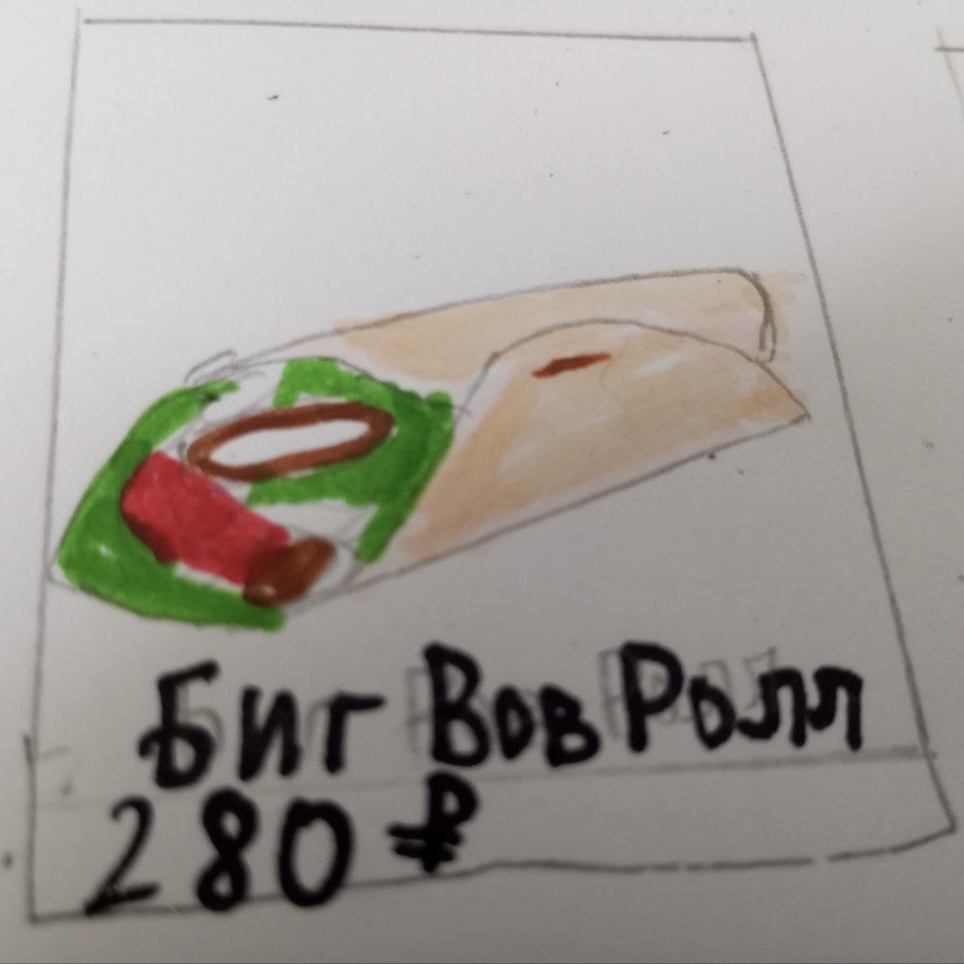 Биг Вов Ролл
280 ₽